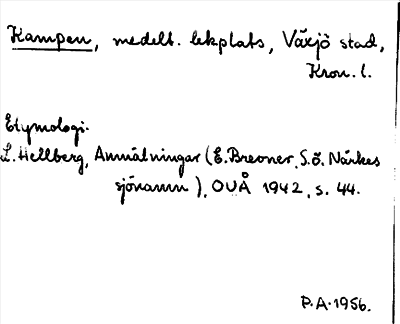 Kampen, medelt. lekplats, Växjö stad,
Kron. l.
Etymologi.
L. Hellberg, Anmälningar (E. Brevner, S.ö. Närkes
sjönamn), OUÅ 1942, s. 44.
P.A. 1956.